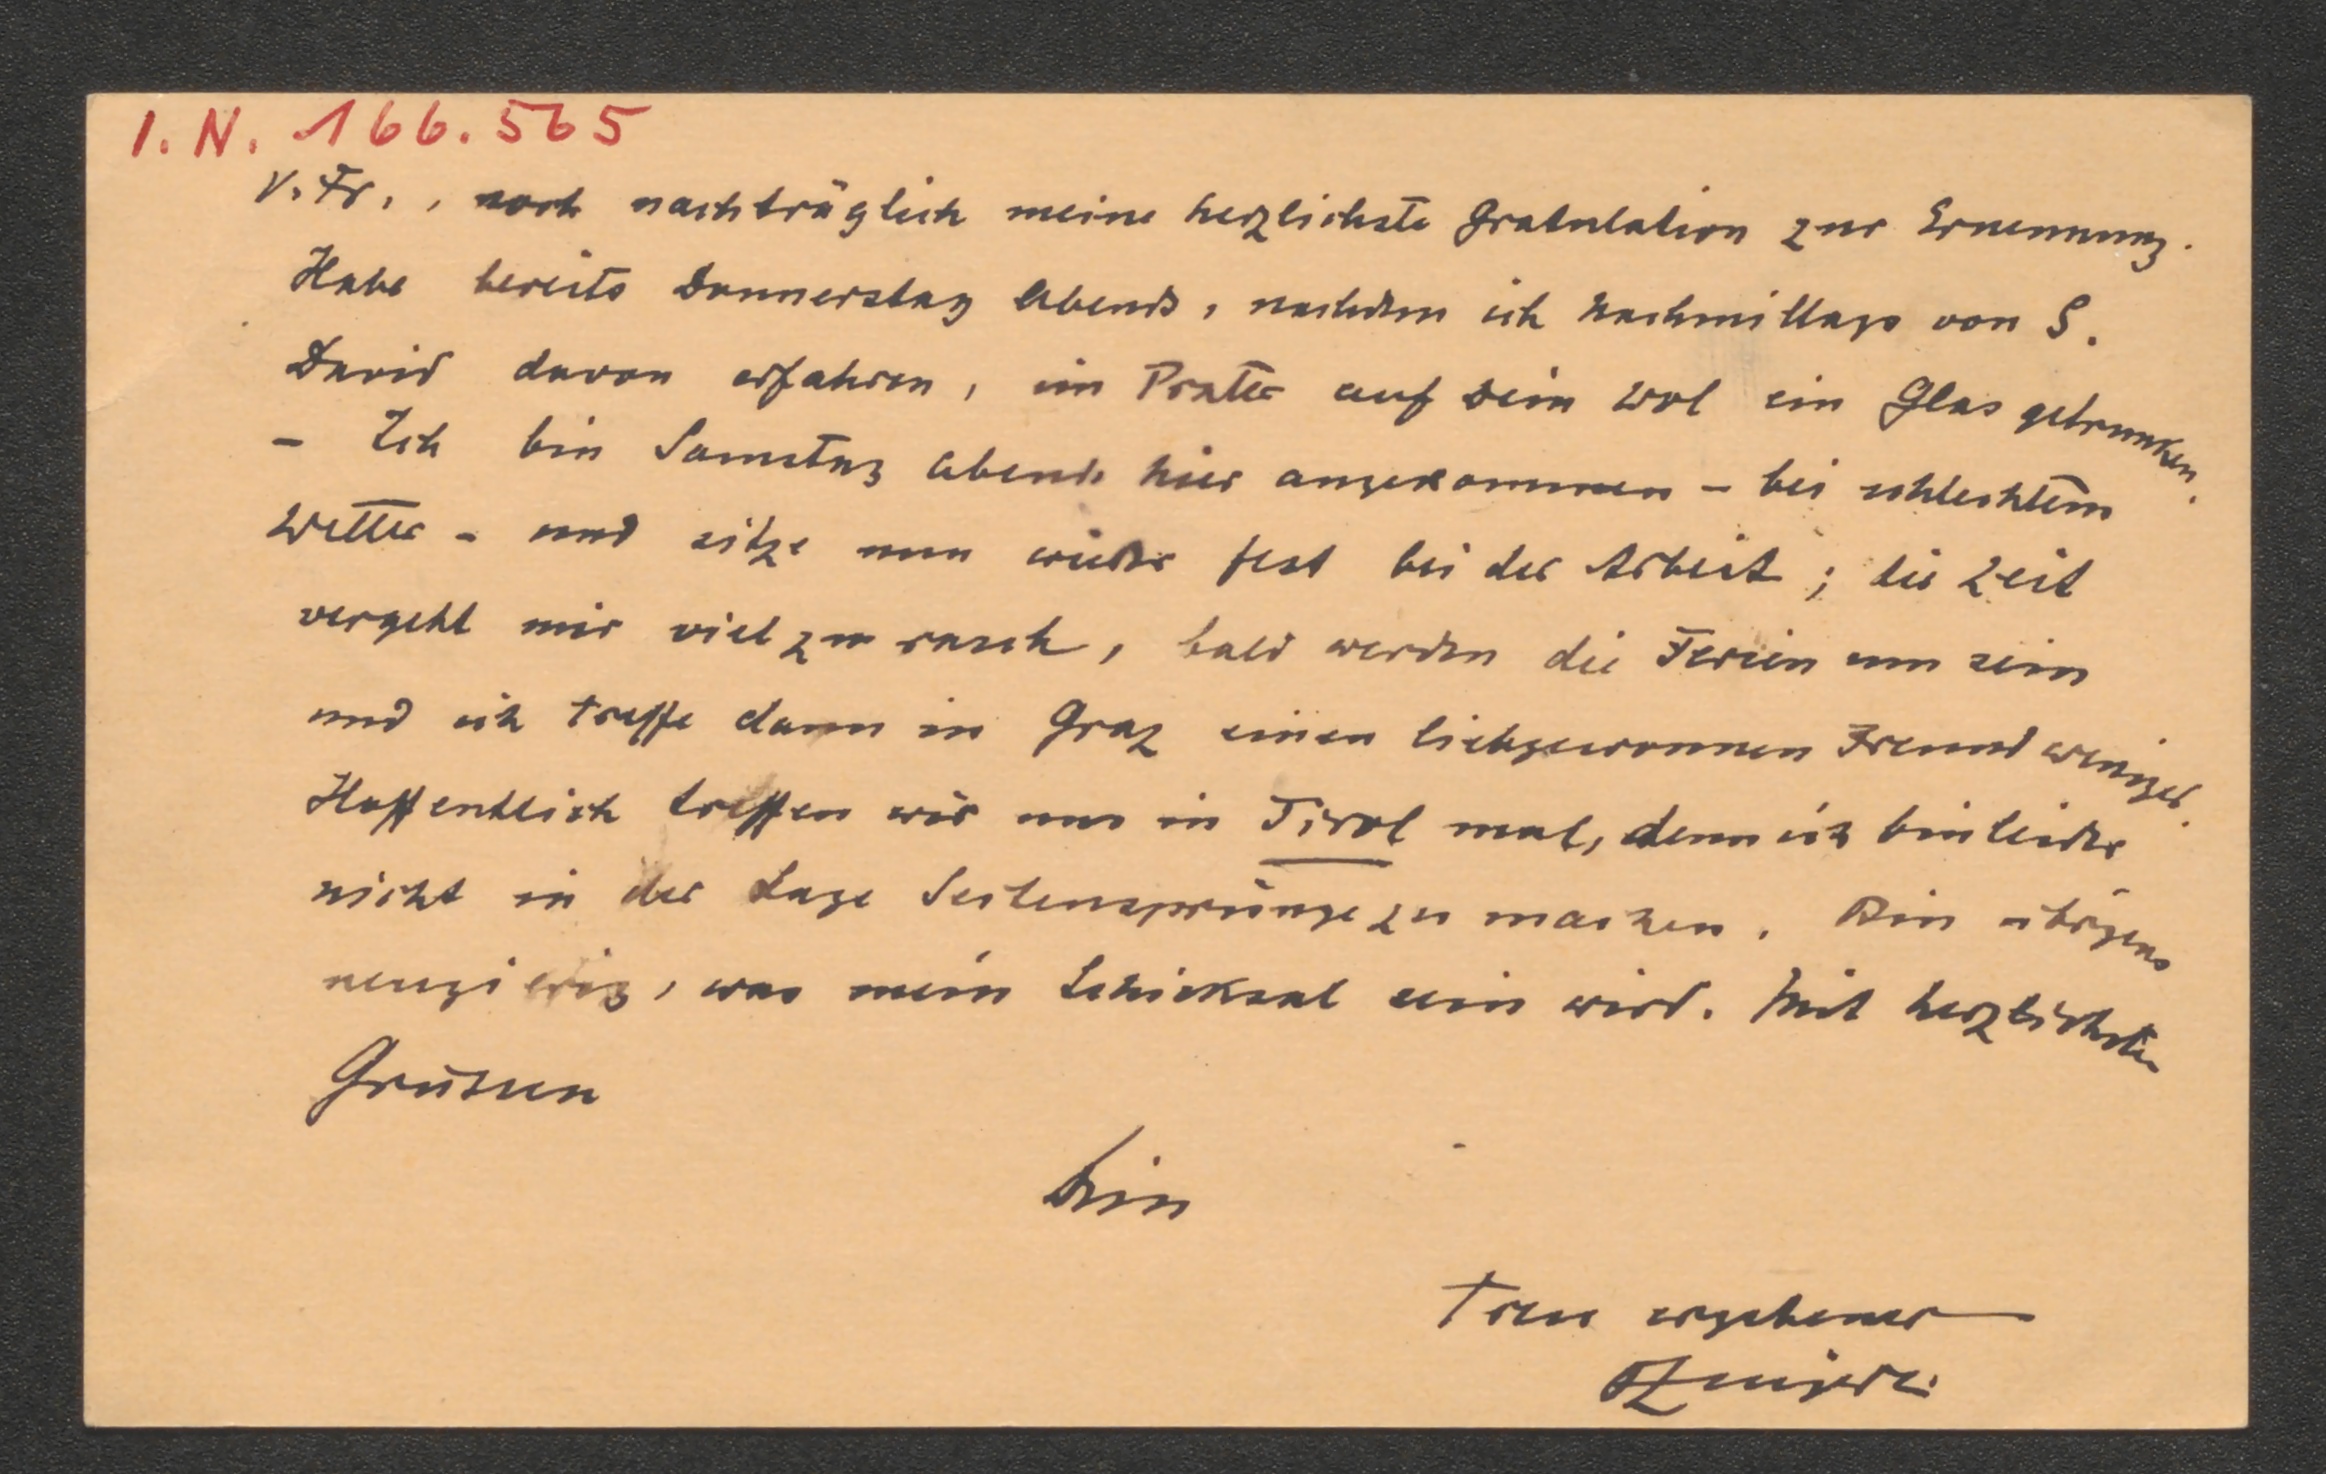 I. N. 166.565
V. Fr., noch nachträglich meine herzlichste Gratulation zur Ernennung.
Habe bereits Donnerstag Abends, nachdem ich Nachmittags von S.
David davon erfahren, im Prater auf Dein Wol ein Glas getrunken.
- Ich bin Samstag abends hier angekommen - bei schlechtem
Wetter - und sitze nun wieder fest bei der Arbeit; die Zeit
vergeht mir viel zu rasch, bald werden die Ferien um sein
und ich treffe dann in Graz einen liebgewonnen Freund weniger.
Hoffentlich treffen wir uns in Tirol mal, denn ich bin leider
nicht in der Lage Seitensprünge zu machen. Bin übrigens
neugierig, was mein Schicksal sein wird. Mit herzlichsten
Grüssen
Dein
Treu ergebener